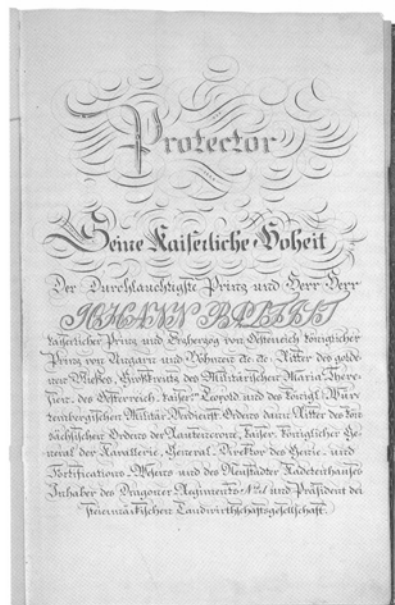 Protector
Seine Kaiserliche Hoheit
Der Durchlauchtigste Prinz und Herr Herr
JOHANN BAPTIST
kayserlicher Prinz und Erzherzog von Oesterreich königlicher
Prinz von Ungarn und Böhmen &c. &c. Ritter des golde-
nen Vließes, Großkreutz des Militärischen Maria-There-
sien, des Österreich. kaiser. Leopold und des königl: Wür-
tembergischen Militär-Verdienst-Ordens dann Ritter des kön
sächsischen Ordens der Rautencrone, kaiser. königlicher Ge-
neral der Kavallerie, General-Direktor des Genie- und
Fortifications-Wesens und des Neustädter Kadetenhauses
Inhaber des Dragoner-Regiments No. 1 und Präsident der
steiermärkischen Landwirthschaftsgesellschaft.